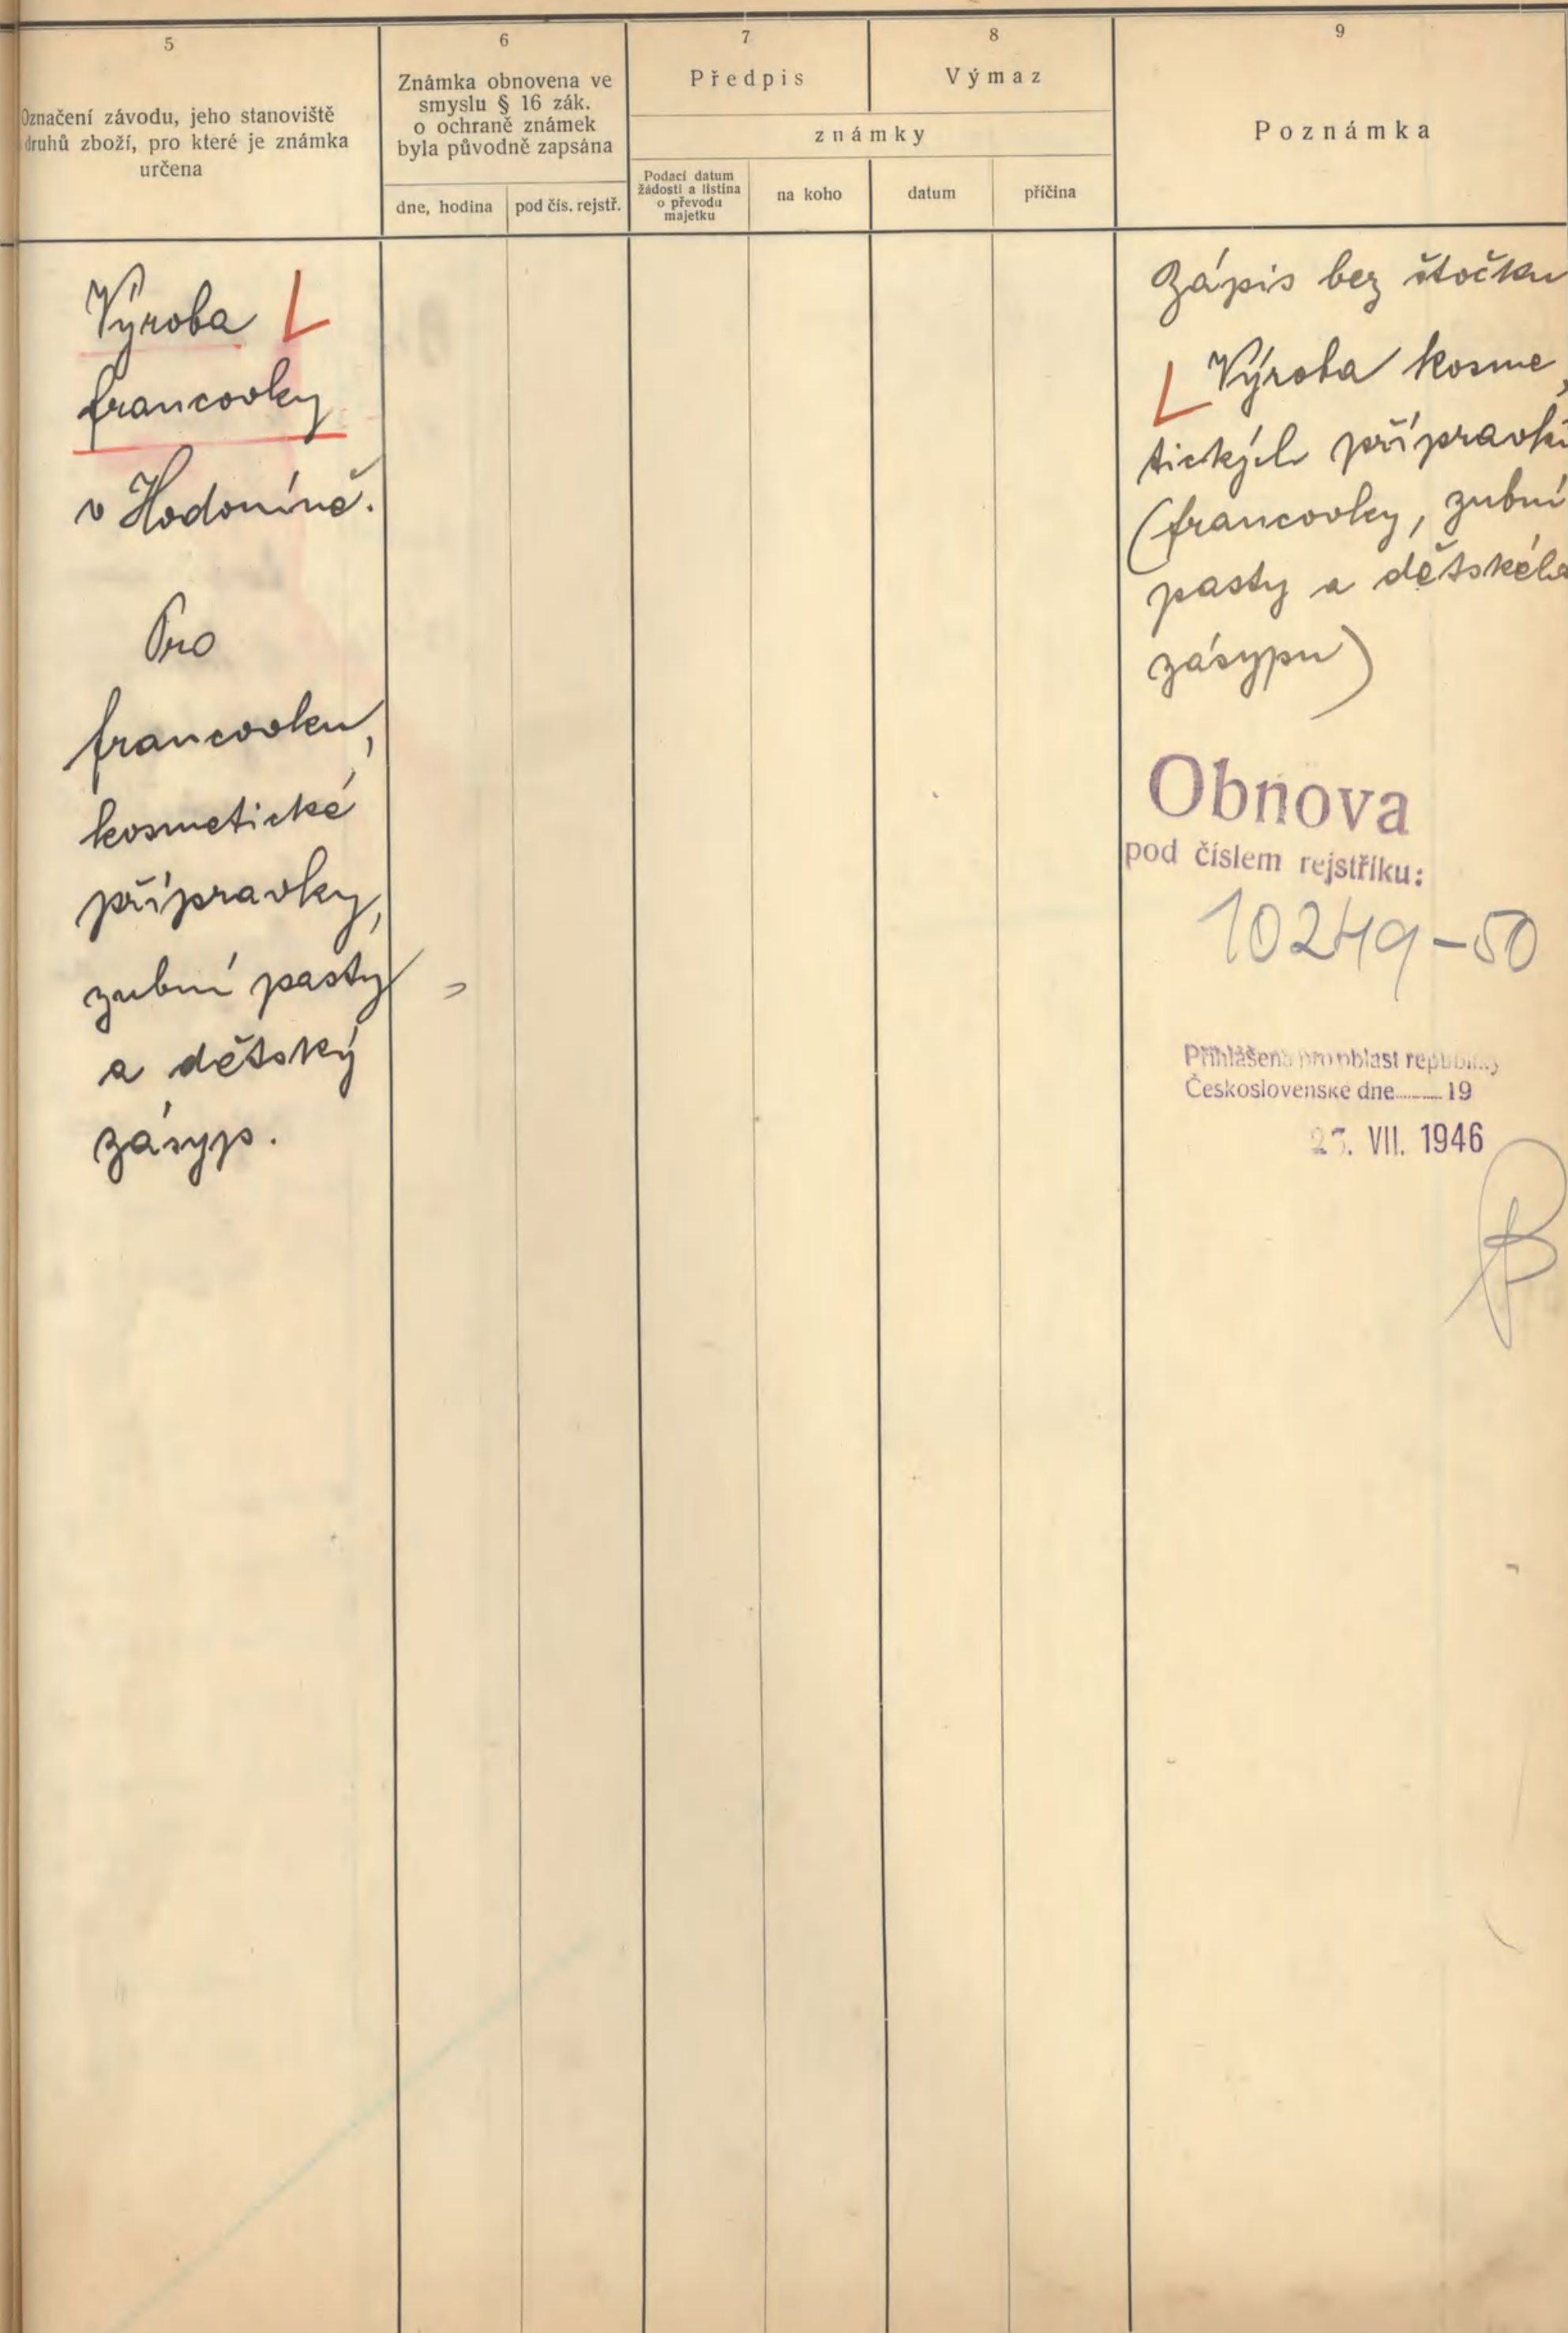 5
Označení závodu, jeho stanoviště
druhů zboží, pro které je známka
určena
6
Známka obnovena ve
smyslu § 16 zák.
o ochraně známek
byla původně zapsána
dne, hodina
pod čís. rejstř.
7
Předpis
8
Výmaz
známky
Podací datum
žádosti a listina
o převodu
majetku
na koho
datum
příčina
9
Poznámka
Výroba
francovky
v Hodoníně.
Pro
francovku,
kosmetické
přípravky,
zubní pasty
a dětský
zásyp.
Zápis bez štočku
Výroba kosme
tických přípravků
(francovky, zubní
pasty a dětského
zásypu)
Obnova
pod číslem rejstříku:
10249-50
Přihlášena pro oblast republiky
Československé dne 19
VII. 1946